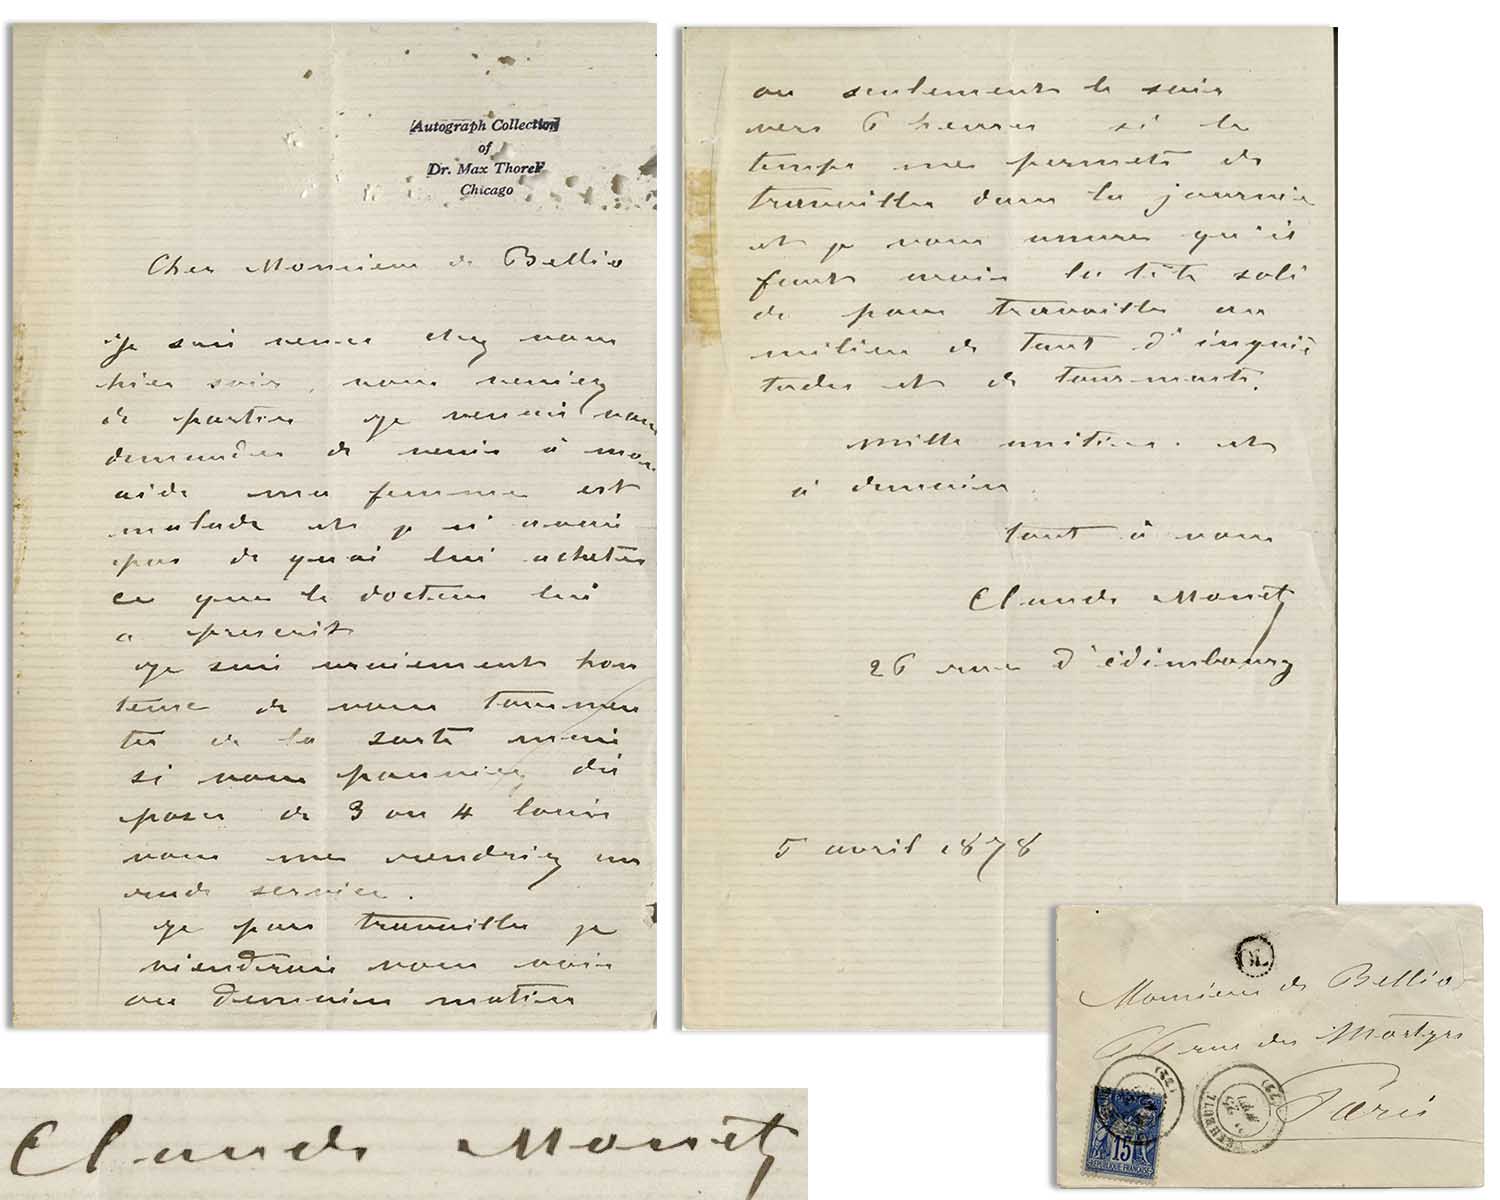 Autograph Collection
of
Dr. Max Thorek
Chicago
Cher Monsieur de Bellio
Je suis venu chez vous
hier soir, vous veniez
de partir je venais vous
demander de venir à mon
aide ma femme est
malade et je n'avais
pas de quoi lui acheter
ce que le docteur lui
a prescrit
Je suis vraiement hon
teux de vous tourmen
ter de la sorte mais
si vous pouviez dis
poser de 3 ou 4 louis
vous me rendriez un
rude service.
Je pars travailler je
viendrais vous voir
ou demain matin
ou seulement le soir
vers 6 heures si le
temps me permets de
travailler dans la journée
et je vous assure qu'il
faut avoir la tête soli
de pour travailler au
milieu de tant d'inquié
tudes et de tourments.
mille amitiés et
à demain.
tout à vous
Claude Monet
26 rue d'édimbourg
5 avril 1878
Monsieur de Bellio
rue des Martyrs
Paris
15
REPUBLIQUE FRANÇAISE
Claude Monet